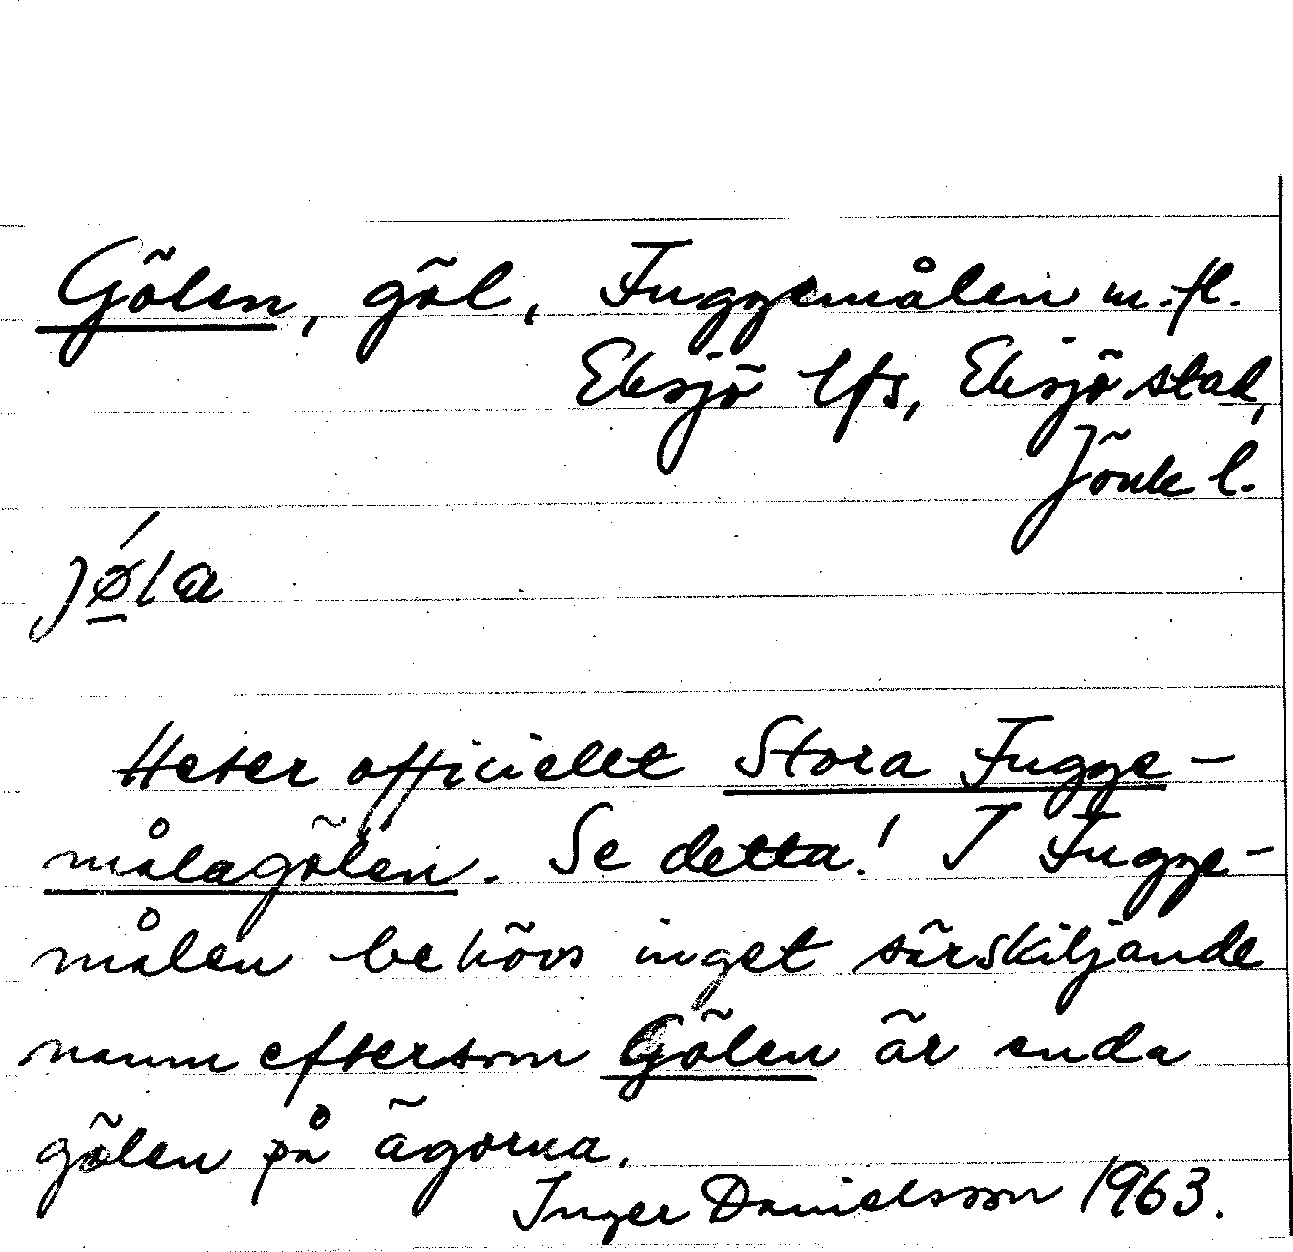 Gölen, göl, Fuggemålen m.fl.
Eksjö lfs, Eksjö stad,
Jönk l.
Heter officiellt Stora Fugge-
målagölen. Se detta! I Fugge-
målen behövs inget särskiljande
namn eftersom Gölen är enda
gölen på ägorna.
Inger Danielsson 1963.